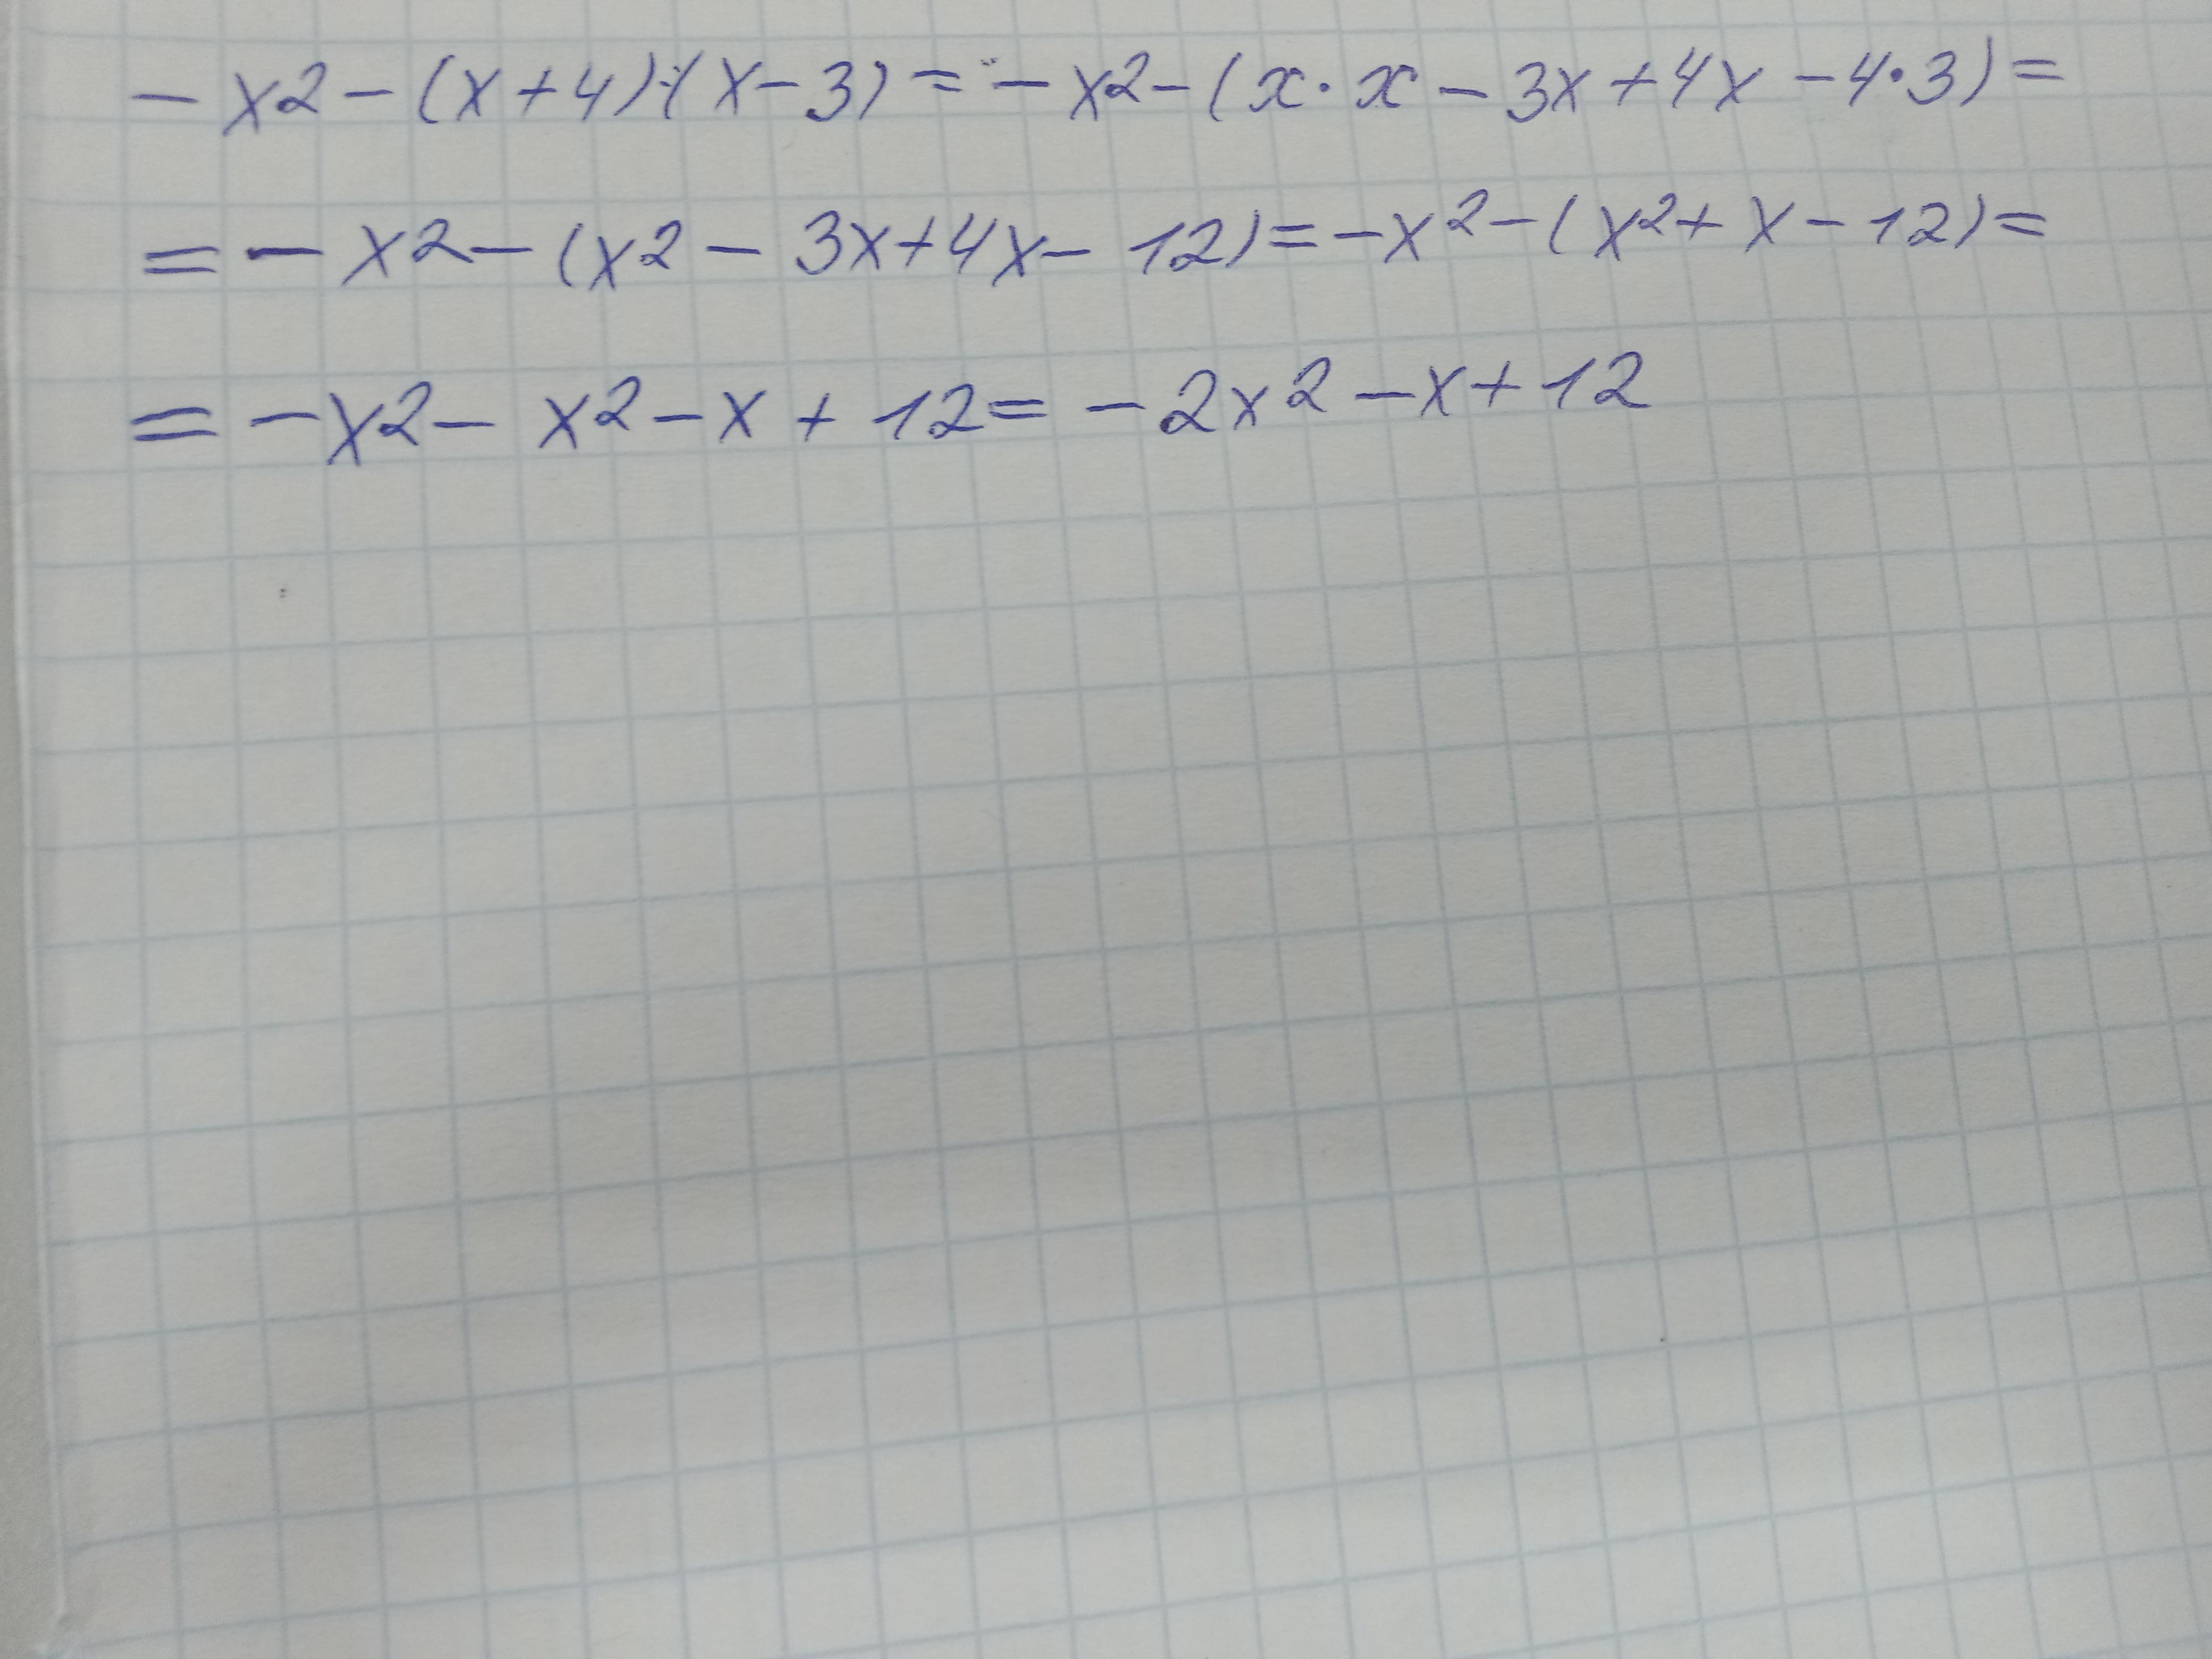 -x2-(x+4)·(x-3)=-x2-(x·x-3x+4x-4·3)=
=-x2-(x2-3x+4x-12)=-x²-(x²+x-12)=
=-x2-x2-x+12=-2x²-x+12